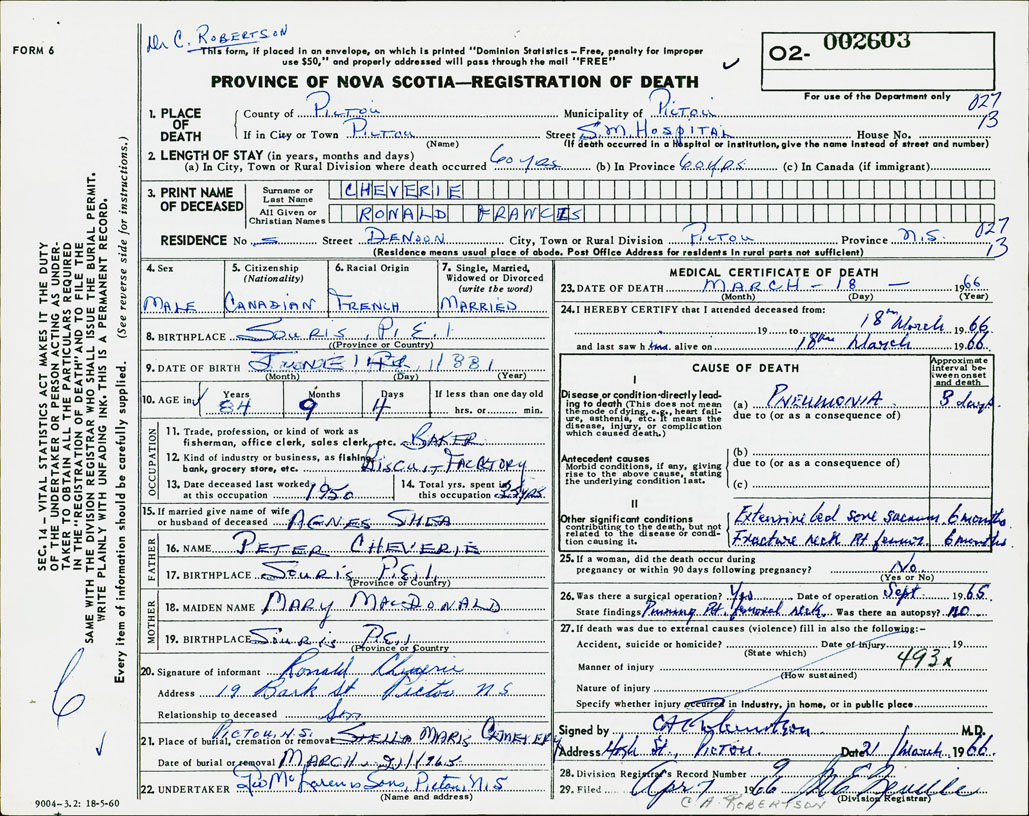 Dr C. ROBERTSON
FORM 6
This form, if placed in an envelope, on which is printed "Dominion Statistics – Free, penalty for improper
use $50," and properly addressed will pass through the mail "FREE"
O2- 002603
PROVINCE OF NOVA SCOTIA—REGISTRATION OF DEATH
For use of the Department only
027
13
1. PLACE OF DEATH
County of PICTOU Municipality of PICTOU
If in City or Town PICTOU Street S.M. HOSPITAL House No.
(Name) (If death occurred in a Hospital or institution, give the name instead of street and number)
2. LENGTH OF STAY (in years, months and days)
(a) In City, Town or Rural Division where death occurred 60 yrs (b) In Province 60 yrs. (c) In Canada (if immigrant)
3. PRINT NAME OF DECEASED
Surname or Last Name CHEVERIE
All Given or Christian Names RONALD FRANCIS
RESIDENCE No. 5 Street DENOON City, Town or Rural Division PICTOU Province N.S.
027
13
(Residence means usual place of abode. Post Office Address for residents in rural parts not sufficient)
4. Sex
MALE
5. Citizenship
(Nationality)
CANADIAN
6. Racial Origin
FRENCH
7. Single, Married,
Widowed or Divorced
(write the word)
MARRIED
8. BIRTHPLACE SOURIS P.E.I
(Province or Country)
9. DATE OF BIRTH JUNE 14 1881
(Month) (Day) (Year)
10. AGE in Years 84 Months 9 Days 4 If less than one day old
hrs. or min.
OCCUPATION
11. Trade, profession, or kind of work as
fisherman, office clerk, sales clerk, etc. BAKER
12. Kind of industry or business, as fishing,
bank, grocery store, etc. BISCUIT FACTORY
13. Date deceased last worked
at this occupation 1950
14. Total yrs. spent in
this occupation yrs.
15. If married give name of wife
or husband of deceased AGNES SHEA
FATHER
16. NAME PETER CHEVERIE
17. BIRTHPLACE SOURIS P.E.I.
(Province or Country)
MOTHER
18. MAIDEN NAME MARY MACDONALD
19. BIRTHPLACE SOURIS P.E.I
(Province or Country)
20. Signature of informant Ronald Cheverie
Address 19 Bank St Pictou N.S
Relationship to deceased Son
PICTOU, N.S.
21. Place of burial, cremation or removal STELLA MARIS CEMETERY
Date of burial or removal MARCH 21/1965
22. UNDERTAKER Geo McLaren & Sons, Pictou, N.S
(Name and address)
9004–3.2: 18-5-60
MEDICAL CERTIFICATE OF DEATH
23. DATE OF DEATH MARCH - 18 - 1966
(Month) (Day) (Year)
24. I HEREBY CERTIFY that I attended deceased from:
19 to 18th March 1966
and last saw him alive on 18th March 1966.
CAUSE OF DEATH
Approximate interval between onset and death
I
Disease or condition directly leading to death (This does not mean the mode of dying, e.g., heart failure, asthenia, etc. It means the disease, injury, or complication which caused death.)
(a) PNEUMONIA 3 days
due to (or as a consequence of)
Antecedent causes
Morbid conditions, if any, giving rise to the above cause, stating the underlying condition last.
(b)
due to (or as a consequence of)
(c)
II
Other significant conditions contributing to the death, but not related to the disease or condition causing it.
Extensive bed sore sacrum 6 months
Fracture neck Rt femur. 6 months
25. If a woman, did the death occur during
pregnancy or within 90 days following pregnancy? No
(Yes or No)
26. Was there a surgical operation? Yes Date of operation Sept. 1965
State findings Pinning Rt. femoral neck Was there an autopsy? no
27. If death was due to external causes (violence) fill in also the following:–
Accident, suicide or homicide? Date of injury 19
(State which)
493x
Manner of injury
(How sustained)
Nature of injury
Specify whether injury occurred in industry, in home, or in public place
Signed by CA Robertson M.D.
Address St, PICTOU. Date 21 March 1966.
28. Division Registrar's Record Number 9
29. Filed Apr 7 66 M E Neville
C. A. ROBERTSON (Division Registrar)
SEC. 14 – VITAL STATISTICS ACT MAKES IT THE DUTY
OF THE UNDERTAKER OR PERSON ACTING AS UNDER-
TAKER TO OBTAIN ALL THE PARTICULARS REQUIRED
IN THE "REGISTRATION OF DEATH" AND TO FILE THE
SAME WITH THE DIVISION REGISTRAR WHO SHALL ISSUE THE BURIAL PERMIT.
WRITE PLAINLY WITH UNFADING INK. THIS IS A PERMANENT RECORD.
Every item of information should be carefully supplied. (See reverse side for instructions.)
6